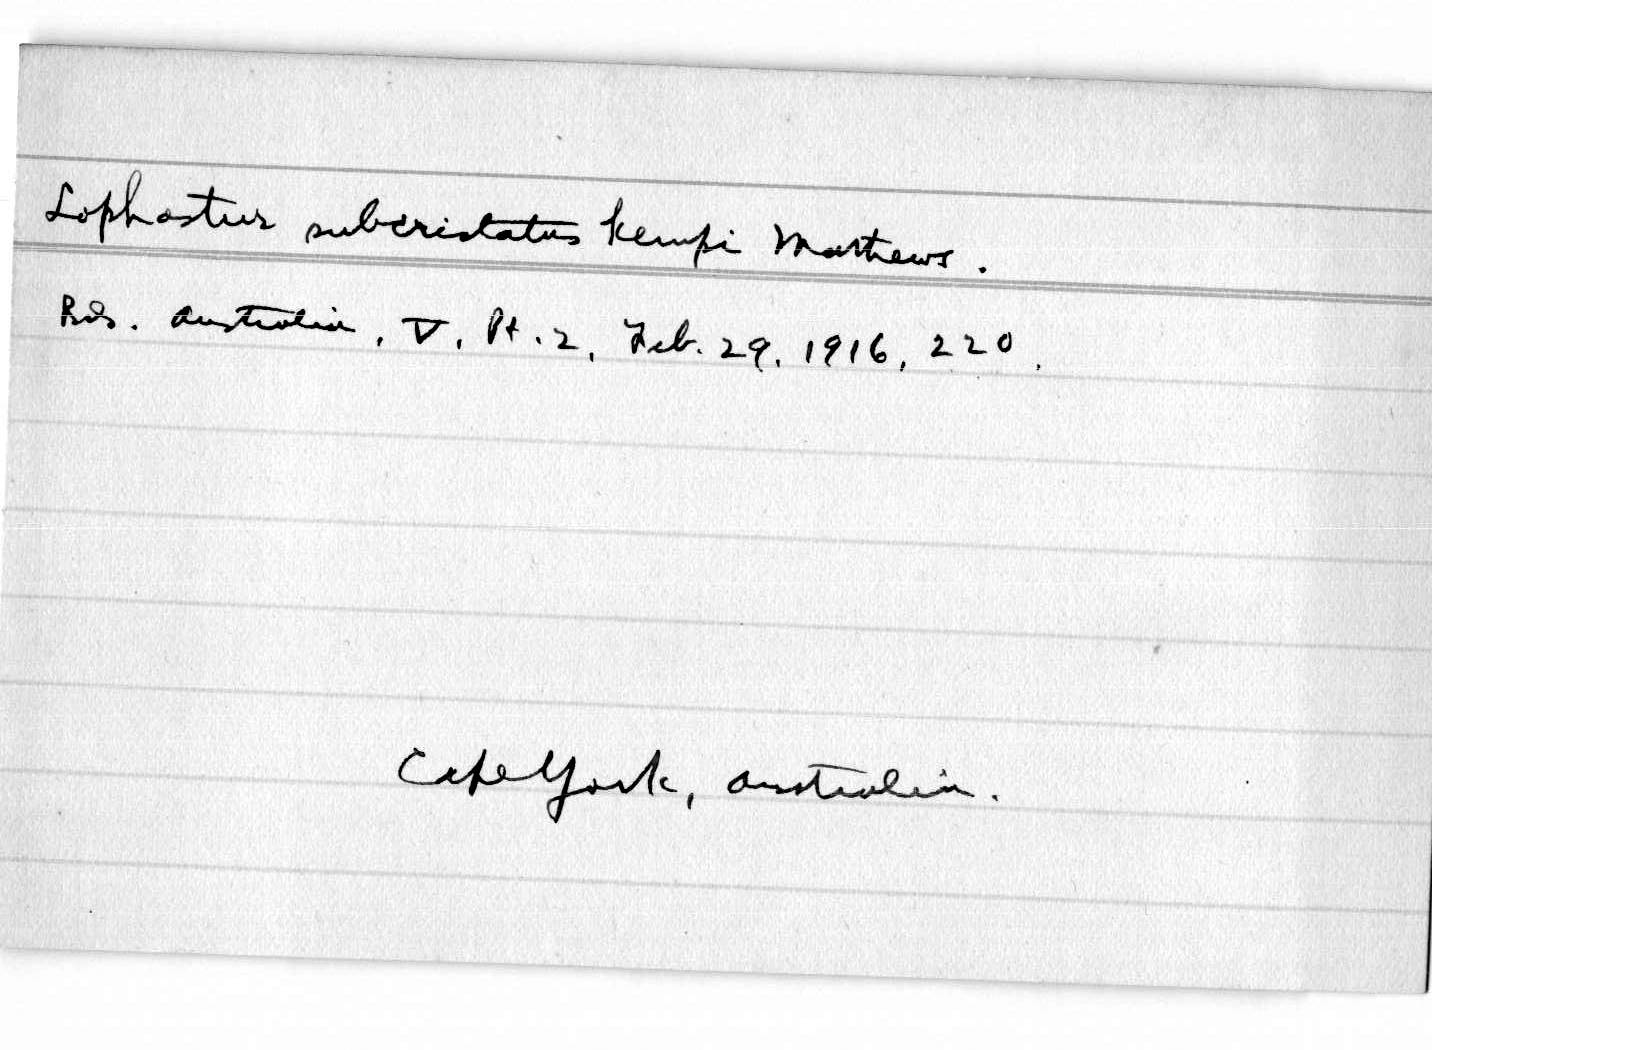 Lophastur subcristatus kempi Mathews.
Bds. Australia, V, Pt. 2, Feb. 29, 1916, 220.
Cape York, Australia.